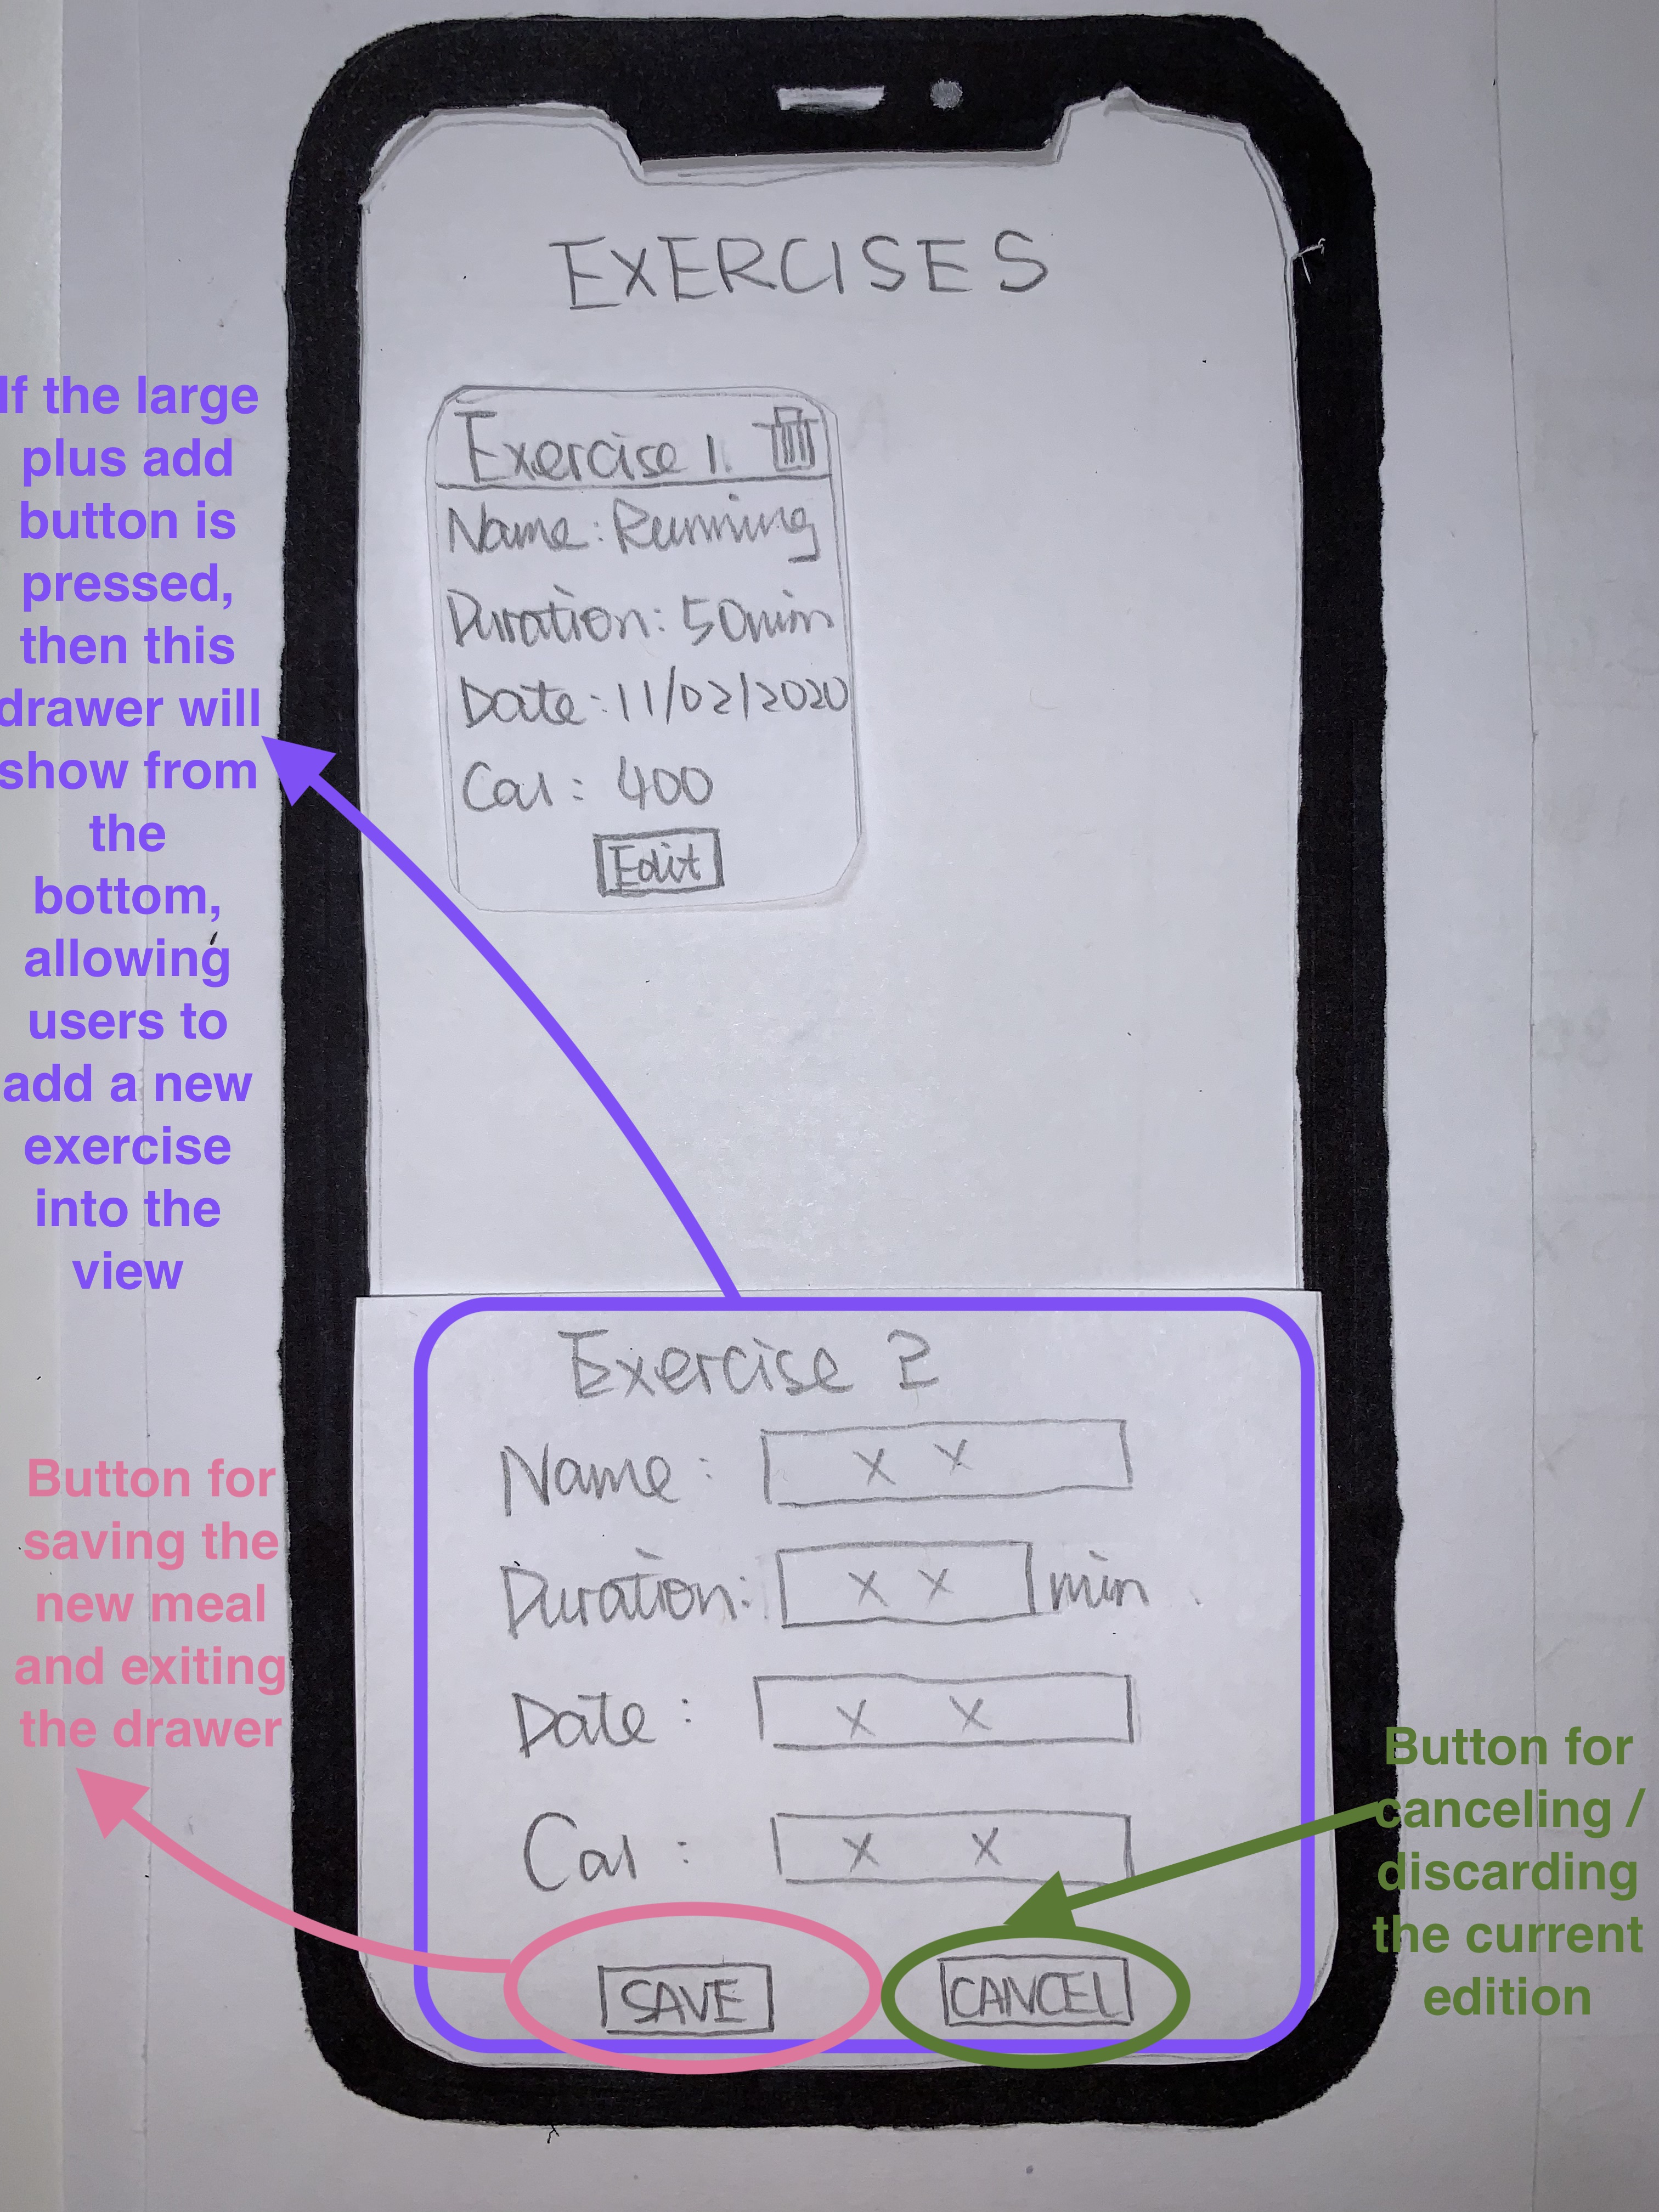 EXERCISES
Exercise 1.
Name: Running
Duration: 50min
Date: 11/02/2020
Cal: 400
Edit
If the large
plus add
button is
pressed,
then this
drawer will
show from
the
bottom,
allowing
users to
add a new
exercise
into the
view
Exercise 2
Name: X X
Duration: X X min
Date: X X
Cal: X X
SAVE CANCEL
Button for
saving the
new meal
and exiting
the drawer
Button for
canceling /
discarding
the current
edition